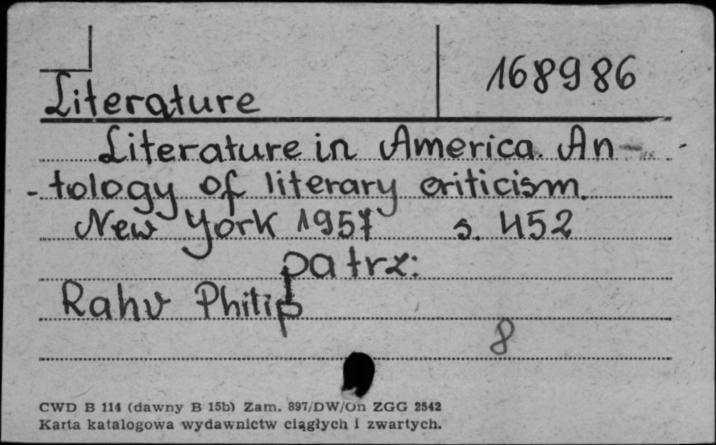 168986
Literature
Literature in America. An-
-tology of literary criticism.
New York 1957 s. 452
patrz:
Rahv Philip
8
CWD B 114 (dawny B 15b) Zam. 897/DW/On ZGG 2542
Karta katalogowa wydawnictw ciągłych i zwartych.